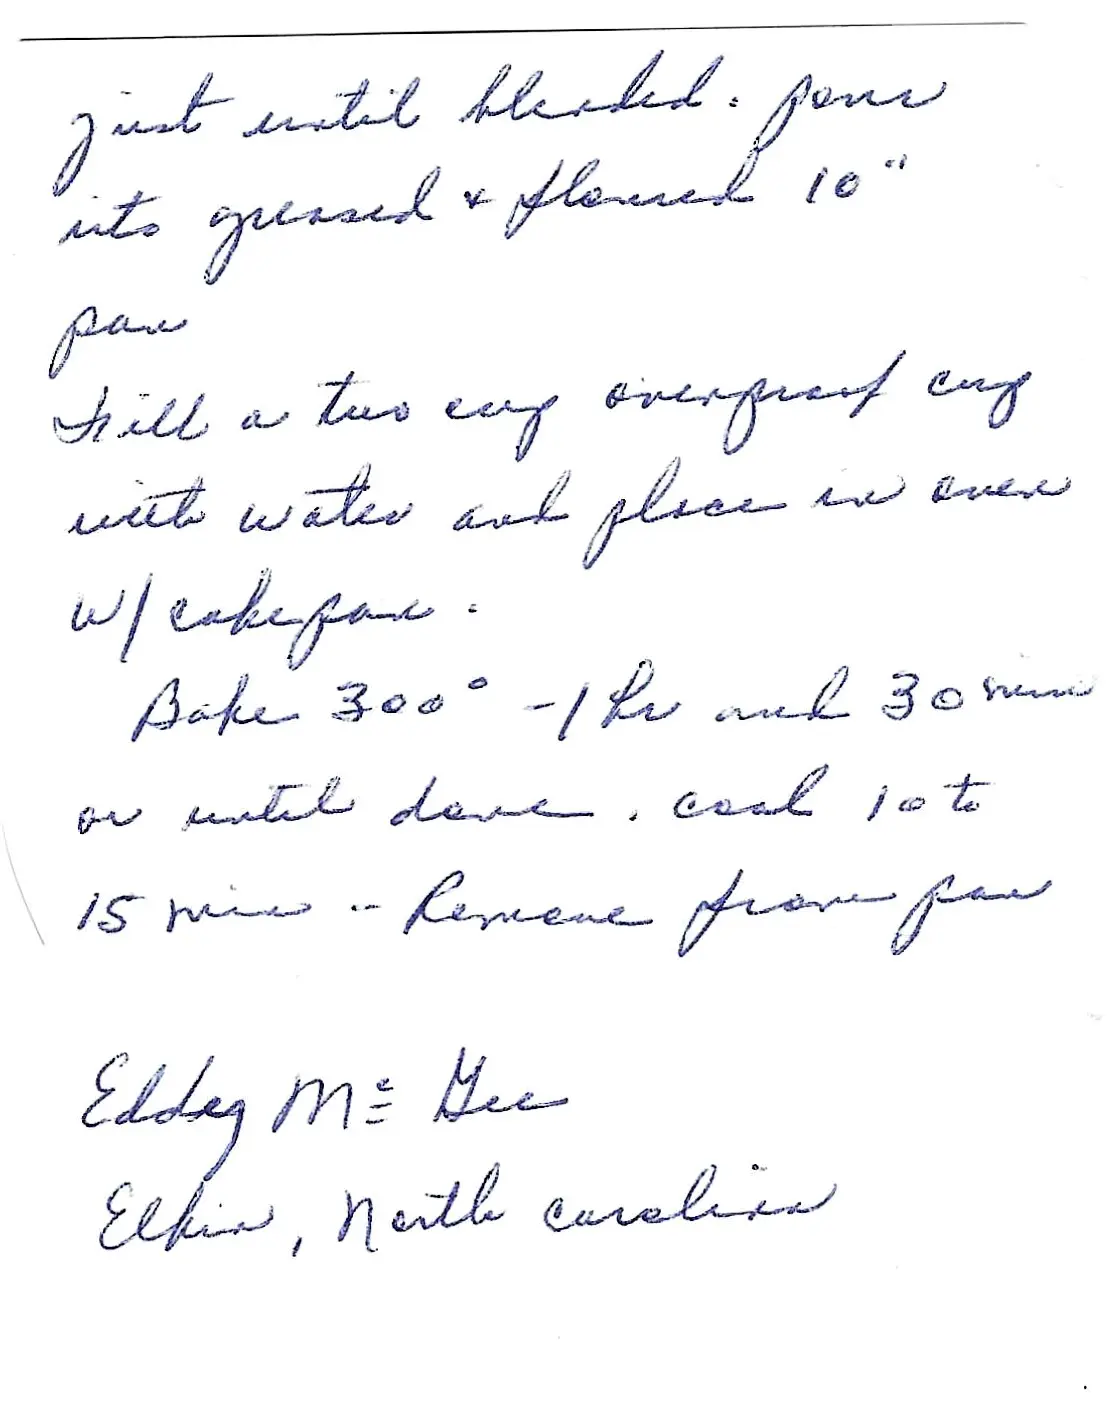 just until blended. pour
into greased + floured 10"
pan
Fill a two cup ovenproof cup
with water and place in oven
w/ cakepan.
Bake 300° - 1 hr and 30 min
or until done. cool 10 to
15 min -- Remove from pan
Eddy Mc Gee
Elkin, North Carolina